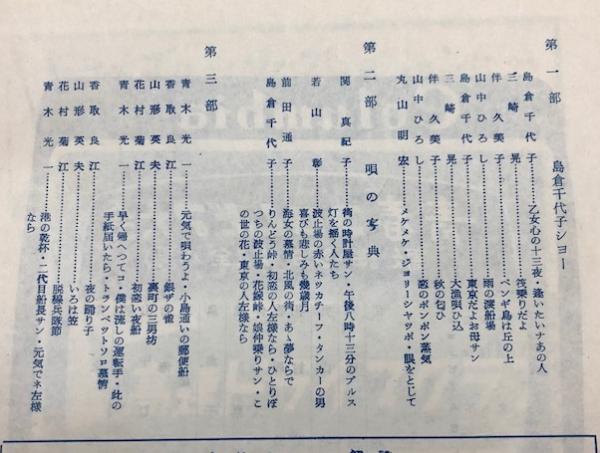 第一部　島倉千代子ショー
島倉千代子…………乙女心の十三夜・逢いたいナあの人
三崎　晃…………筏乗りだよ
伴久美子…………ペンギ島は丘の上
山中ひろし…………雨の浚船場
島倉千代子…………東京だよお母サン
三崎　晃…………大漁唄ひ込
伴久美子…………秋の匂ひ
山中ひろし…………恋のポンポン蒸気
丸山明宏…………メケメケ・ジヨリーシヤツポ・眼をとじて
第二部　唄の宝典
関真紀子…………街の時計屋サン・午後八時十三分のブルス
灯を揺く人たち
若山　彰…………波止場の赤いネツカチーフ・タンカーの男
喜びも悲しみも幾歳月
前田通子…………海女の慕情・北風の街・あゝ夢ならで
島倉千代子…………りんどう峠・初恋の人左様なら・ひとりぼ
つちの波止場・花嫁峠・娘仲乗りサン・こ
の世の花・東京の人左様なら
第三部
青木光一…………元気で唄わうよ・小島通いの郵便船
香取良江…………銀ザの雀
山形英夫…………裏町の三男坊
花村菊江…………初恋い夜船
青木光一…………早く帰へつてコ・僕は流しの運転手・此の
手紙届いたら・トランペツトソロ慕情
香取良江…………夜の踊り子
山形英夫…………いろは笠
花村菊江…………脱線兵隊節
青木光一…………港の乾杯・二代目船長サン・元気でネ左様
なら
Columbia